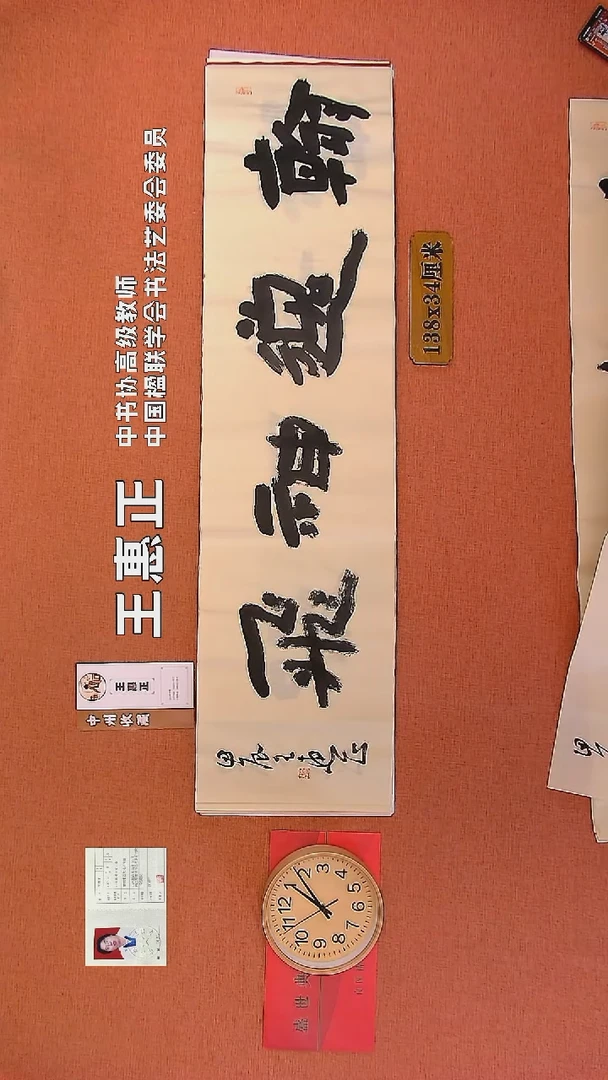 王惠正
中书协高级教师
中国楹联学会书法艺委会委员
翰逸神飛
138x34厘米
王惠正
中州收藏
盛世典
12
1
2
3
4
5
6
7
8
9
10
11